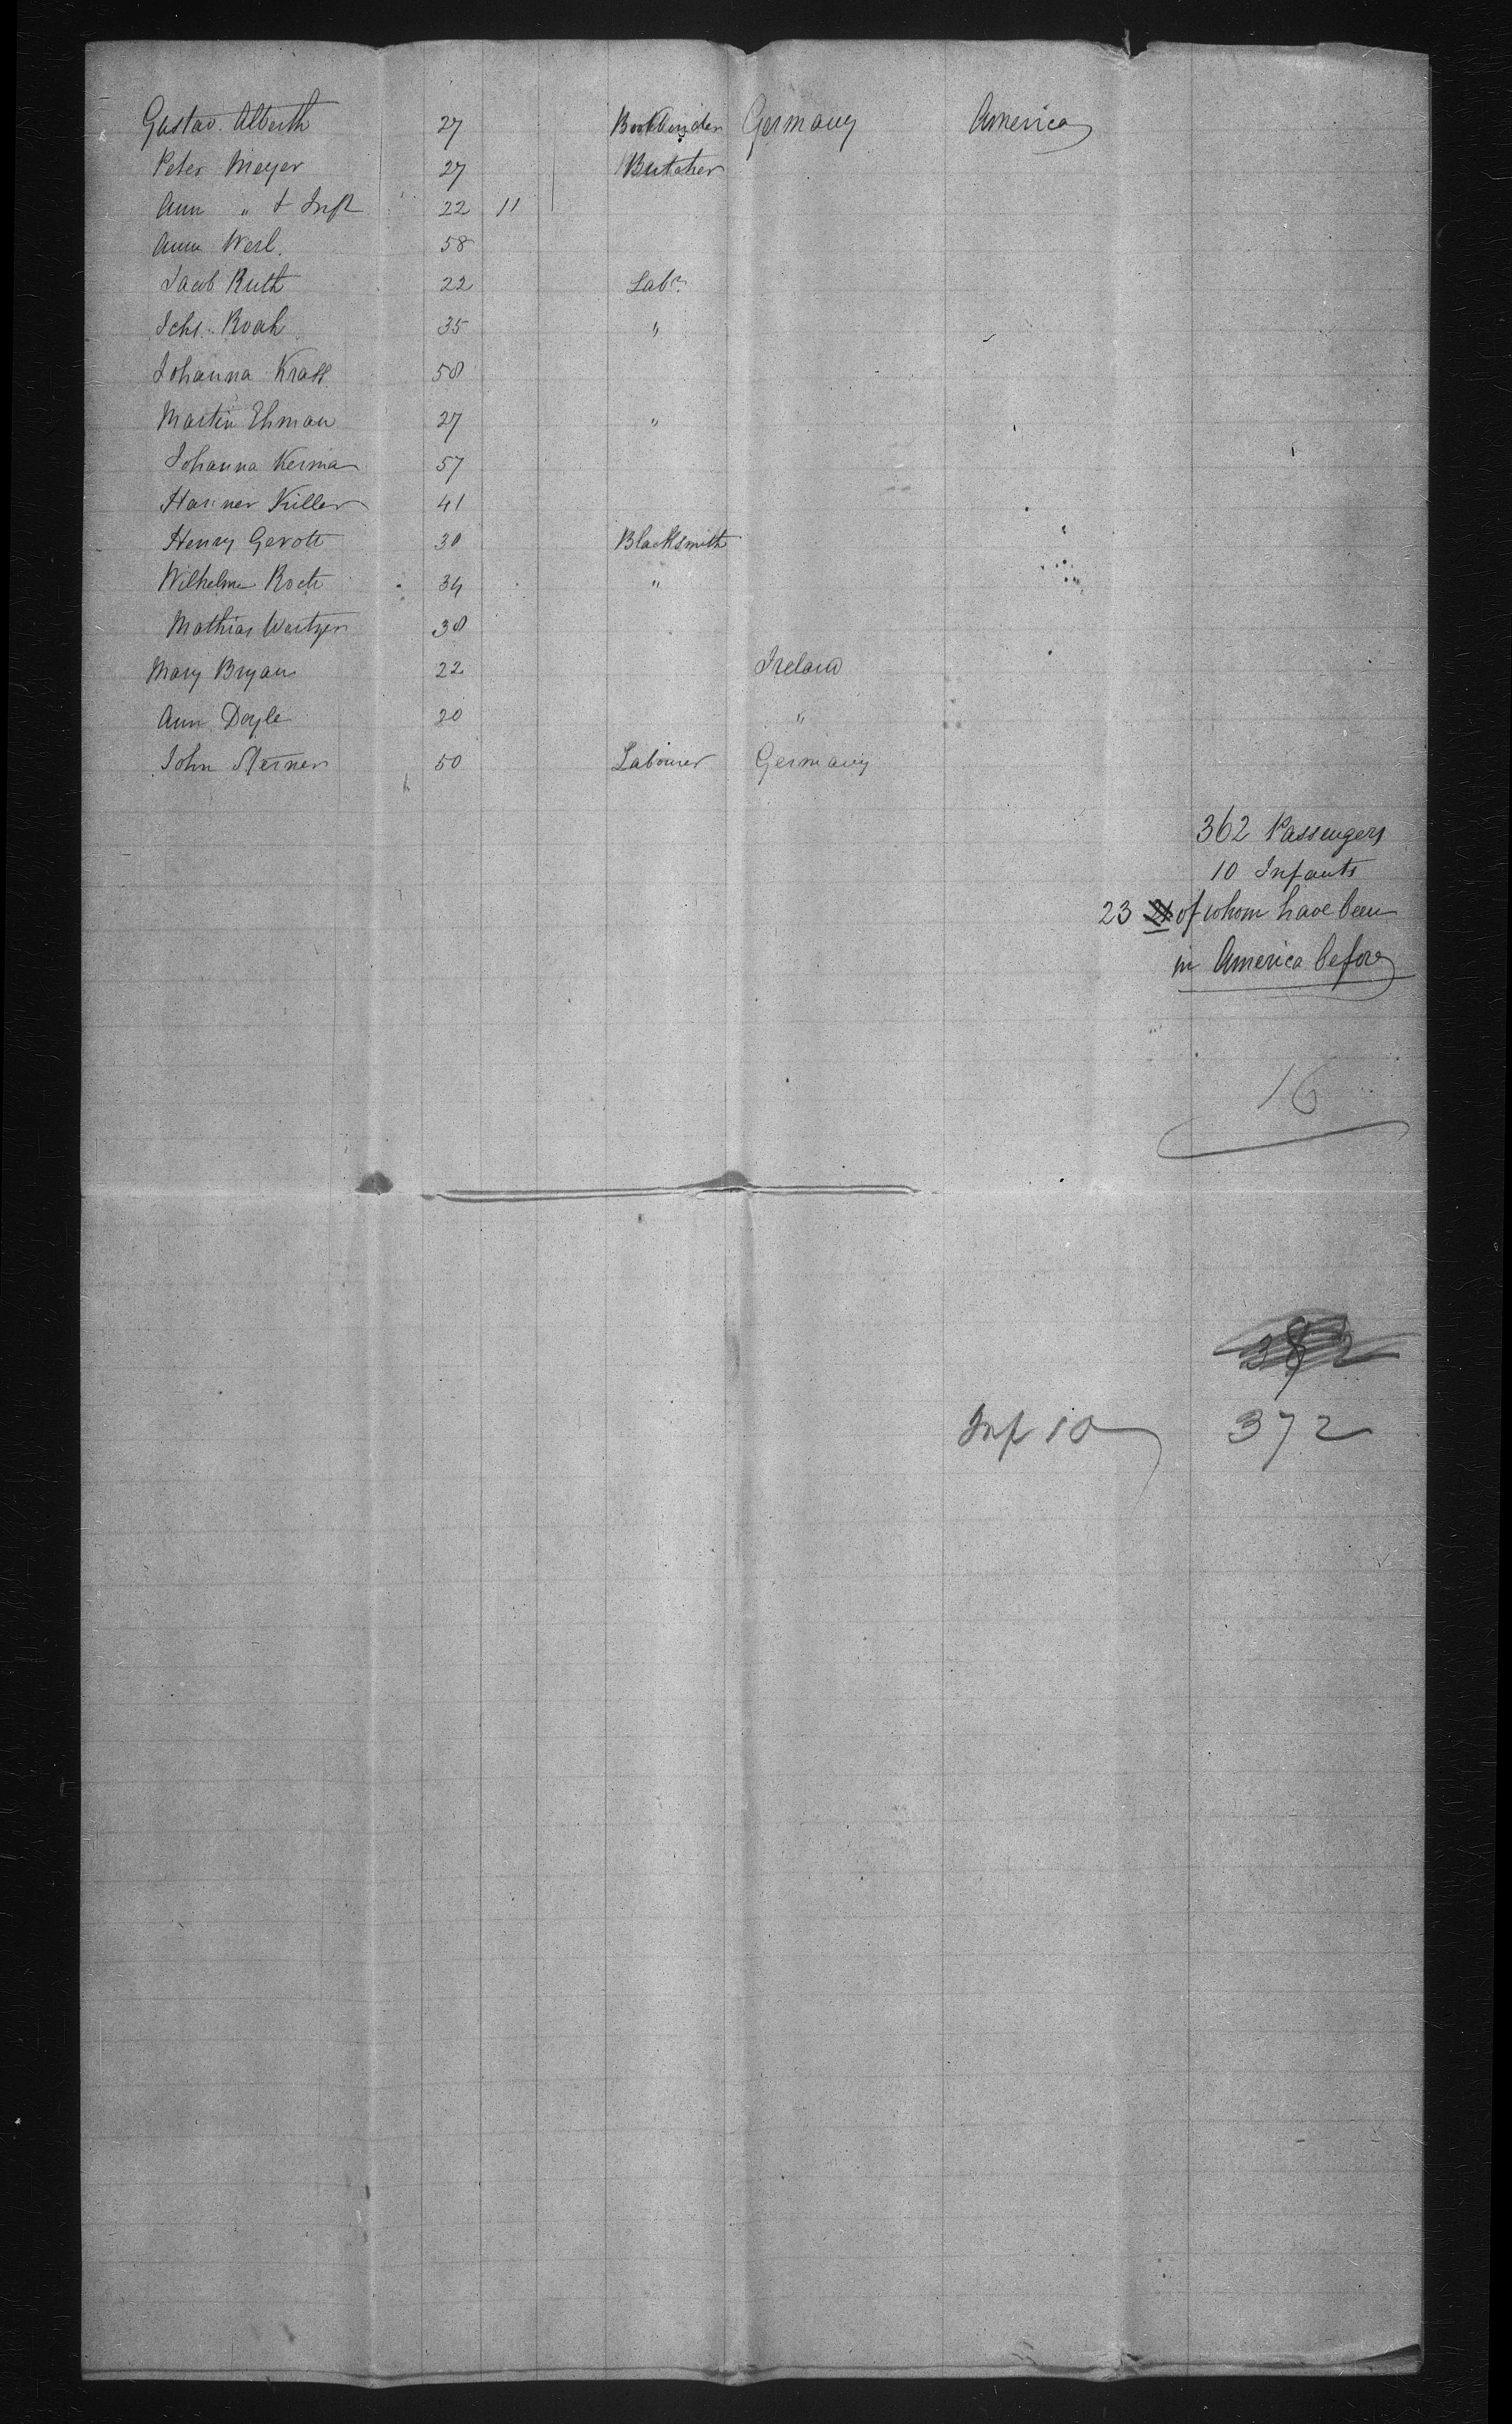 Gustav Alberth 27 Bookbinder Germany America
Peter Meyer 27 Butcher
Ann " & Inft 22 11
Anna Werl 58
Jacob Ruth 22 Labr
Johs Roah 35 "
Johanna Krass 50
Martin Ehman 27 "
Johanna Kerman 57
Killer 41
Henry Gerott 30 Blacksmith
Wilhelm 34 "
Mathias 30
Mary Bryan 22 Ireland
Ann Doyle 20 "
John 50 Labourer Germany
362 Passengers
10 Infants
23 21 of whom have been
in America before
16
382
Inf 10 372